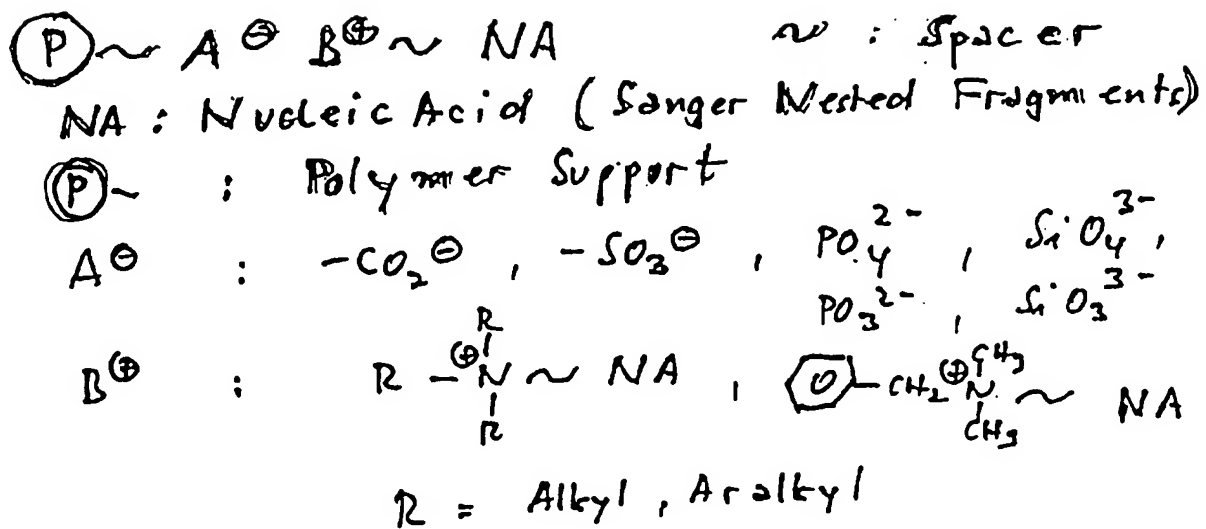 Ⓟ~ A⊖ B⊕ ~ NA ~ : Spacer
NA : Nucleic Acid ( Sanger Nested Fragments)
Ⓟ~ : Polymer Support
A⊖ : -CO₂⊖ , -SO₃⊖ , PO₄²⁻ , SiO₄³⁻ ,
PO₃²⁻ , SiO₃³⁻
R
B⊕ : R -⊕N ~ NA , -CH₂⊕N ~ NA
CH₃
R
CH₃
R = Alkyl , Aralkyl